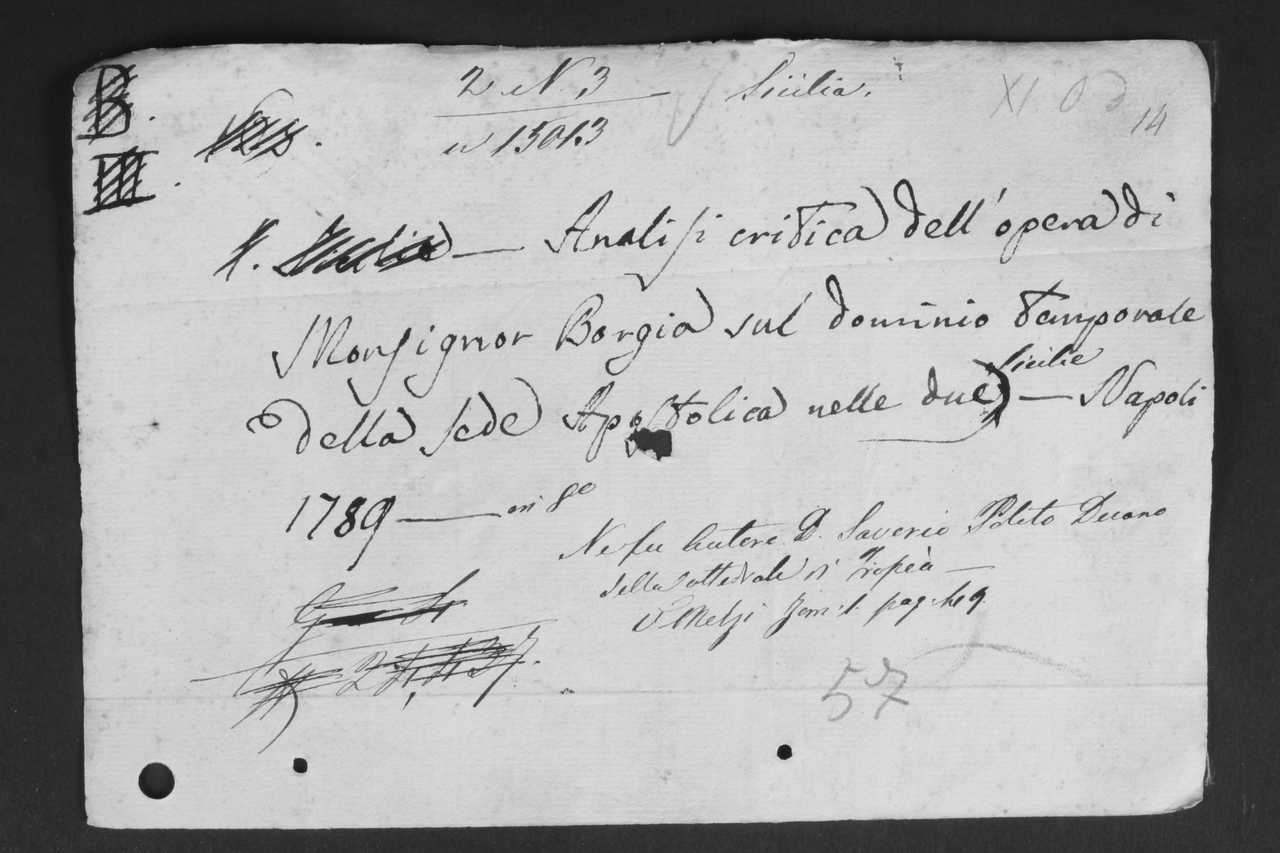 B.
III.
2 N 3
Sicilia.
XI
14
15013
Analisi critica dell'opera di
Monsignor Borgia sul dominio temporale
della Sede Apostolica nelle due Sicilie — Napoli
1789 — in 8º
Ne fu Autore D. Saverio Poleto Decano
della Cattedrale di Tropea —
V. Melzi Tom. 1. pag.
57